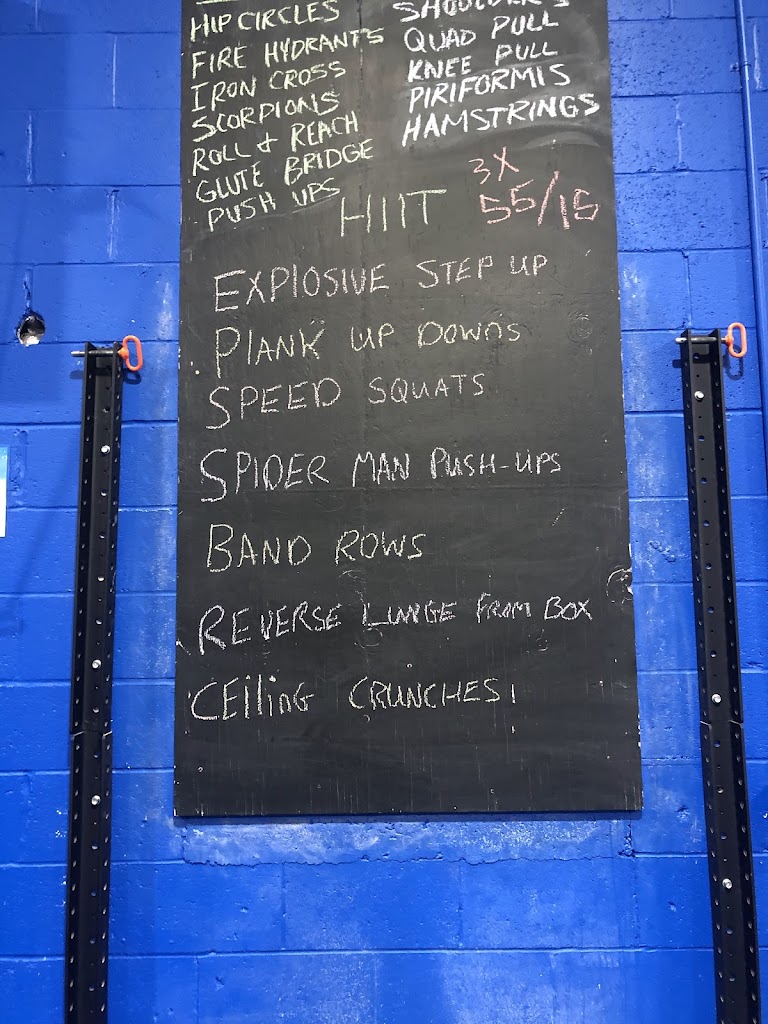 HIP CIRCLES
FIRE HYDRANTS
IRON CROSS
SCORPIONS
ROLL & REACH
GLUTE BRIDGE
PUSH UPS
SHOULDER'S
QUAD PULL
KNEE PULL
PIRIFORMIS
HAMSTRINGS
HIIT 3X 55/15
EXPLOSIVE STEP UP
PLANK UP DOWNS
SPEED SQUATS
SPIDER MAN PUSH-UPS
BAND ROWS
REVERSE LUNGE FROM BOX
CEILING CRUNCHES!